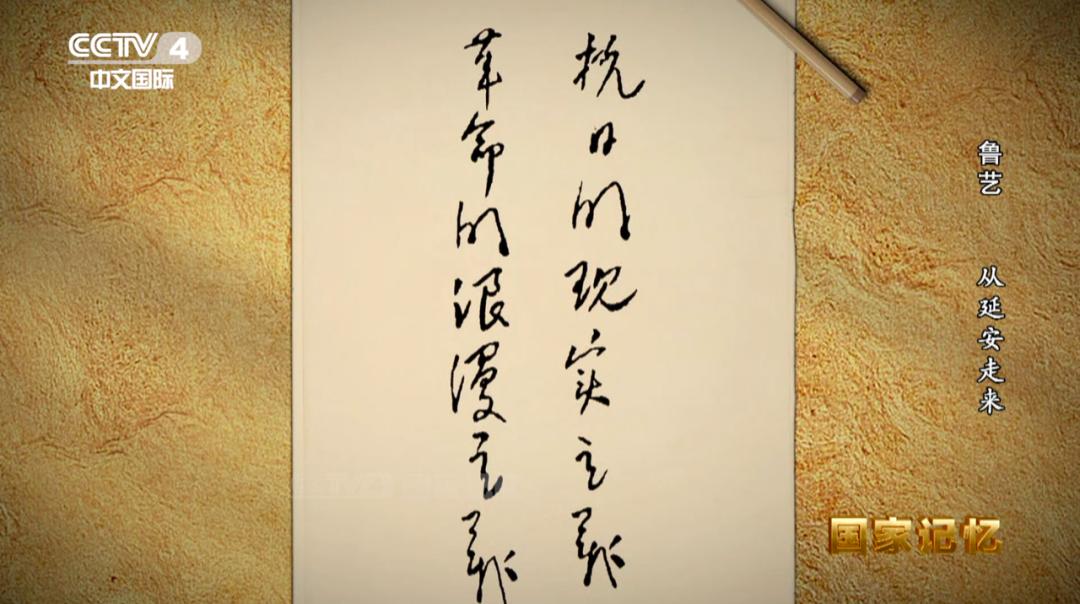 CCTV 4
中文国际
抗日的现实主义
革命的浪漫主义
鲁艺 从延安走来
国家记忆